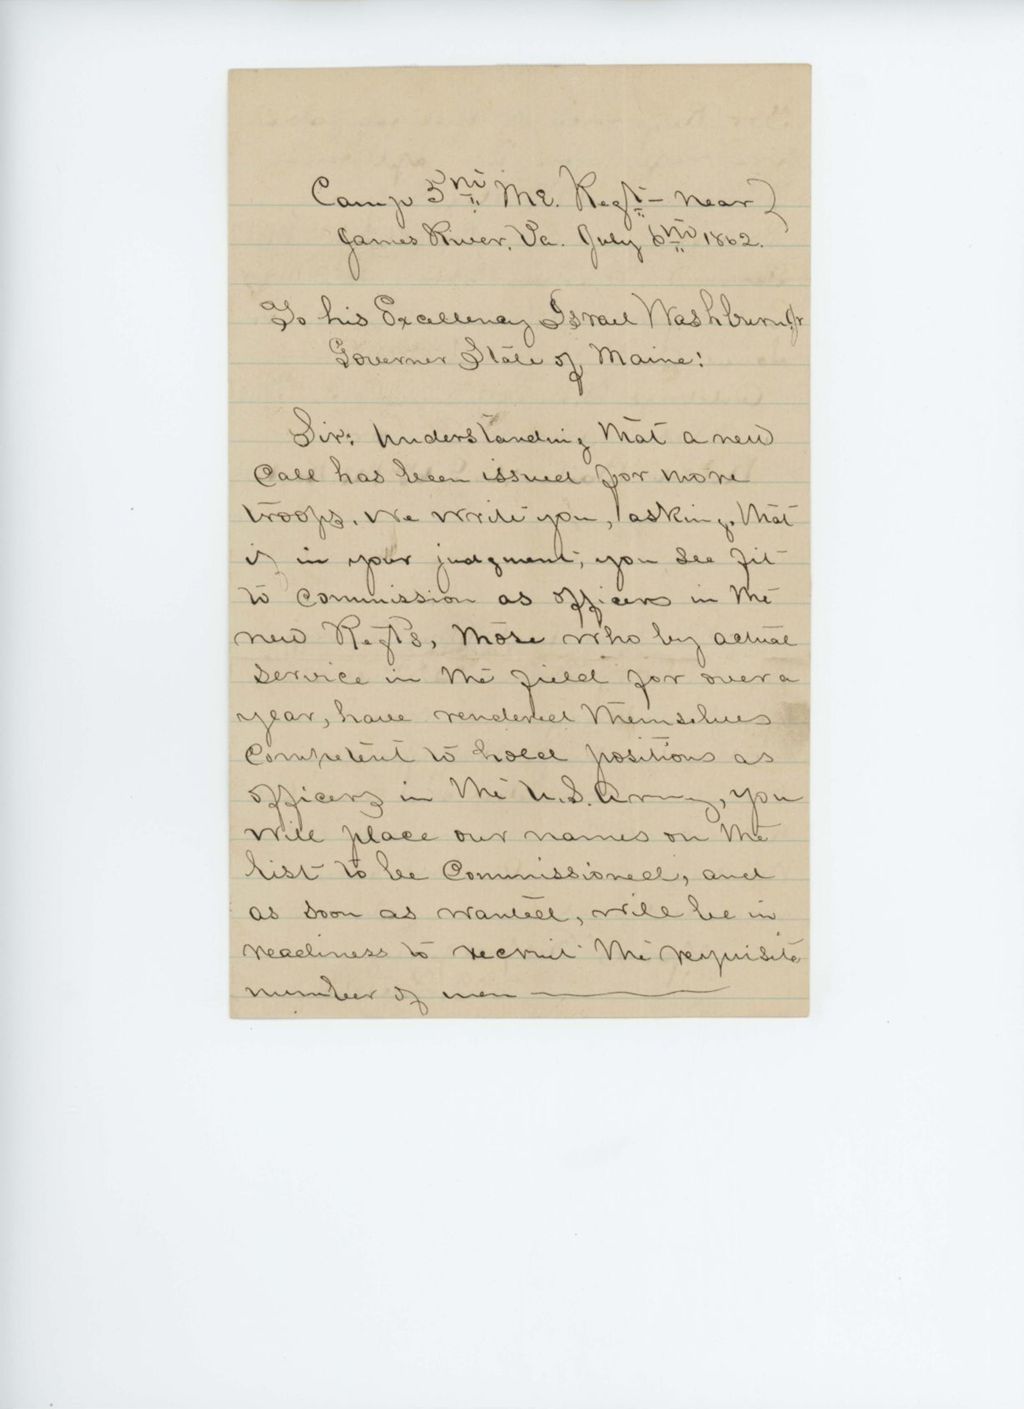 Camp 5th Me. Regt - near
James River, Va. July 6th 1862.
To his Excellency Israel Washburn, Jr
Governer State of Maine:
Sir: Understanding that a new
Call has been issued for more
troops. We write you, asking, that
if in your judgment, you see fit
to commission as officers in the
new Regts, those who by actual
service in the field for over a
year, have rendered themselves
competent to hold positions as
officers in the U.S. Army, you
will place our names on the
list to be Commissioned, and
as soon as wanted, will be in
readiness to recruit the requisite
number of men